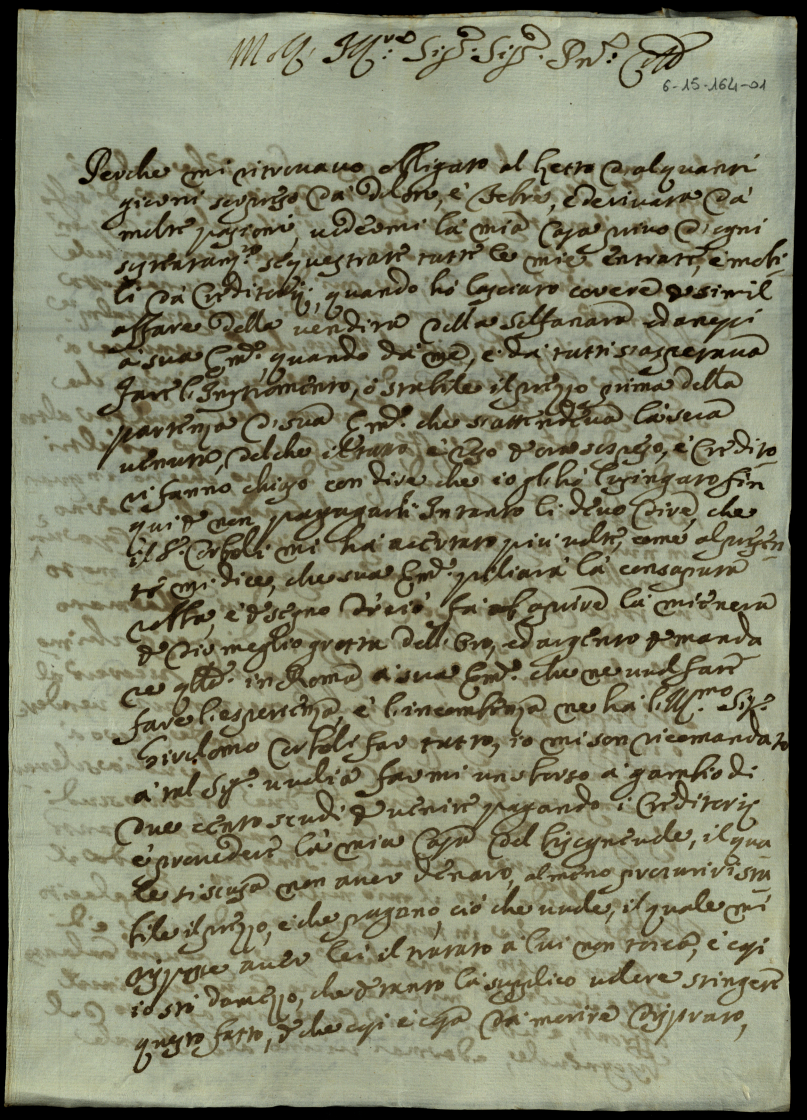 Molt' Ill.re Sig.r Sig.r Pne. Coll.
6-15-164-01
Perche mi ritrovavo obligato al letto d'alquanti
giorni sorpreso da dolore, e febre, e derivata da
molte passioni, vedermi la mia casa privo d'ogni
sequestrate tutte le mie entrate, e mobi-
li da Creditorij, quando hò lasciato correre de simil
affare della vendita della Solfanara ed anessi
à sua Em.a quando da me, e da tutti s'aspettava
fare l'Instromento, ò stabile il prezzo prima della
partenza di sua Em.a che s'attendeva la sua
venuta, del che è stato sospeso, e Credito
ri fanno chiasso con dire che io gli hò lusingato fin
qui de non pagarli. Intanto li devo dire che
il S.r Arboli mi hà accertato più volte, come al presen
te mi dice, che sua Em.a pigliarà la consaputa
robba, e in segno di ciò fà la miniera
de Dio meglio grotta dell'Oro, ed argento de manda
re in Roma à sua Em.a che ne vuol fare
fare l'esperienza, e l'incombenza ne hà l'Ill.mo Sig.r
Girolomo Arboli far tutto, io mi son ricomandato
à tal Sig.r voglia farmi un sborso à gambio di
due cento scudi de venire pagando i Creditorij
è provedere la mia casa del bisognevole, il qua
le si scusa non aver denaro, almeno procurivi sta
bile il prezzo, e che pagano ciò che vuole, il quale mi
rispose aver lei il tratato à lui non tocca, e così
io stò di mezzo, che de tanto la supplico volere stringere
questo fatto, de che così è cosa da morire disperato,